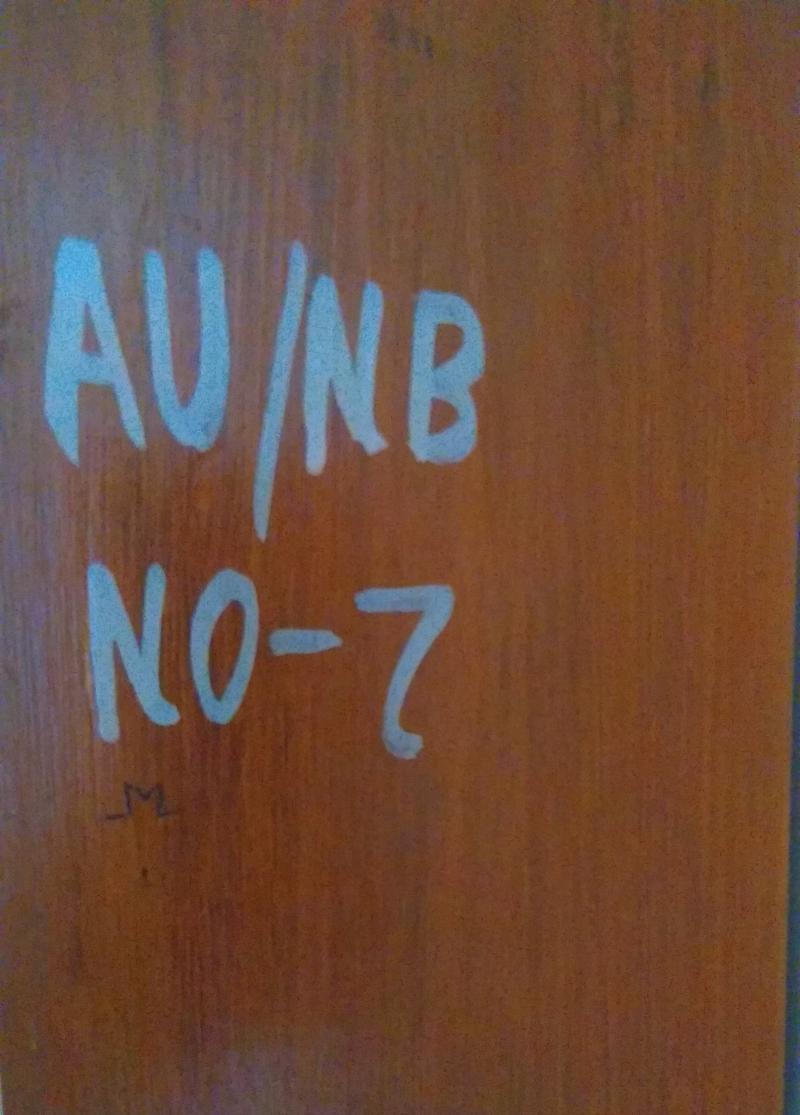 AU/NB
NO-7
M